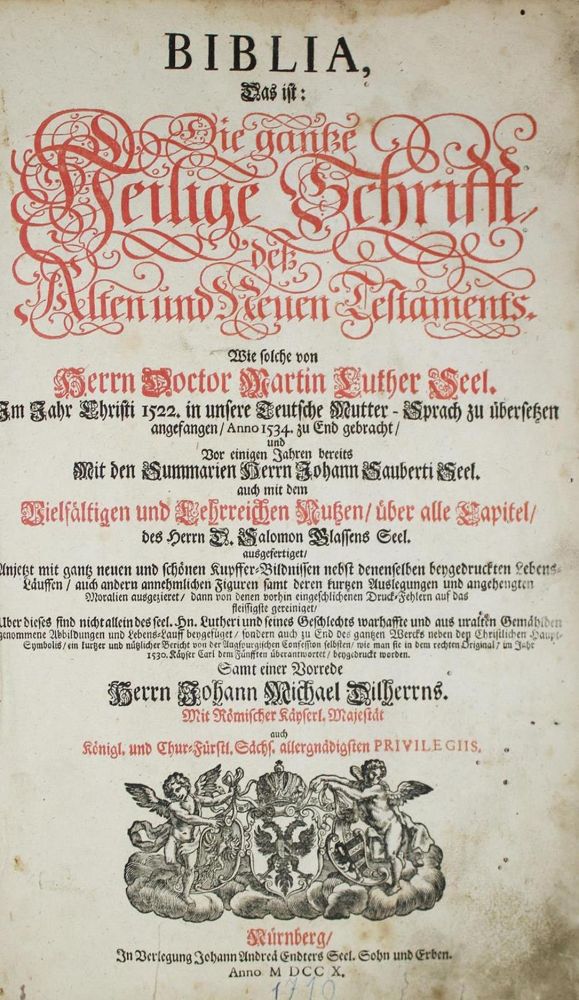 BIBLIA,
Das ist:
Die gantze
Heilige Schrifft/
deß
Alten und Neuen Testaments.
Wie solche von
Herrn Doctor Martin Luther Seel.
Im Jahr Christi 1522. in unsere Teutsche Mutter-Sprach zu übersetzen
angefangen/ Anno 1534. zu End gebracht/
und
Vor einigen Jahren bereits
Mit den Summarien Herrn Johann Sauberti Seel.
auch mit dem
Vielfältigen und Lehrreichen Nutzen/ über alle Capitel/
des Herrn D. Salomon Glassens Seel.
ausgefertiget/
Anjetzt mit gantz neuen und schönen Kupffer-Bildnüssen nebst denenselben beygedruckten Lebens-
Läuffen/ auch andern annehmlichen Figuren samt deren kurtzen Auslegungen und angehengten
Moralien ausgezieret/ dann von denen vorhin eingeschlichenen Druck-Fehlern auf das
fleissigste gereiniget/
Uber dieses sind nicht allein des seel. Hn. Lutheri und seines Geschlechts warhaffte und aus uralten Gemählden
genommene Abbildungen und Lebens-Lauff beygefüget/ sondern auch zu End des gantzen Wercks neben den Christlichen Haupt-
Symbolis/ ein kurtzer und nützlicher Bericht von der Augspurgischen Confession selbsten/ wie man sie in dem rechten Original/ im Jahr
1530. Käyser Carl dem Fünfften überantwortet/ beygedruckt worden.
Samt einer Vorrede
Herrn Johann Michael Dilherrns.
Mit Römischer Käyserl. Majestät
auch
Königl. und Chur-Fürstl. Sächs. allergnädigsten PRIVILEGIIS.
Nürnberg/
In Verlegung Johann Andreä Endters Seel. Sohn und Erben.
Anno M DCC X.
1710